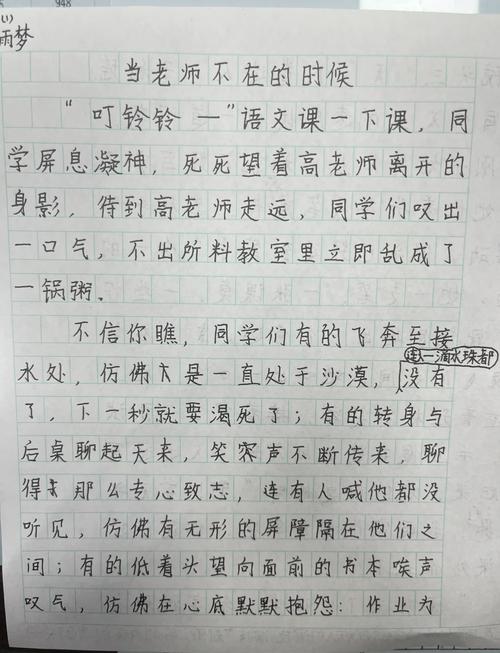 948
雨梦
当老师不在的时候
“叮铃铃—”语文课一下课，同
学屏息凝神，死死望着高老师离开的
身影，待到高老师走远，同学们叹出
一口气，不出所料教室里立即乱成了
一锅粥。
不信你瞧，同学们有的飞奔至接
连一滴水珠都
水处，仿佛是一直处于沙漠，没有
了，下一秒就要渴死了；有的转身与
后桌聊起天来，笑容声不断传来，聊
得那么专心致志，连有人喊他都没
听见，仿佛有无形的屏障隔在他们之
间；有的低着头望向面前的书本唉声
叹气，仿佛在心底默默抱怨：作业为